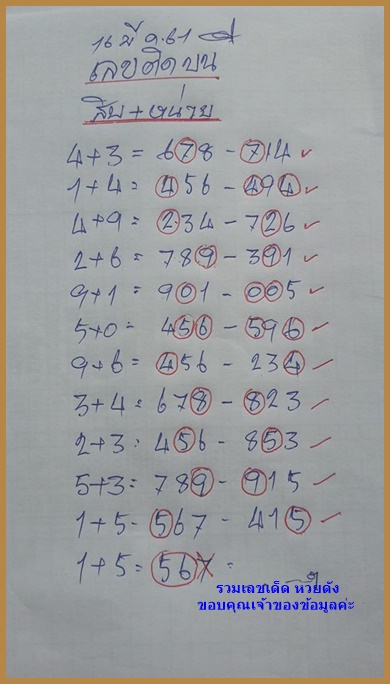 16 มี.ค.61
เลขติดบน
สิบ+หน่วย
4+3 = 678 - 714 ✓
1+4 = 456 - 494 ✓
4+9 = 234 - 726 ✓
2+6 = 789 - 391 ✓
9+1 = 901 - 005 ✓
5+0 = 456 - 596 ✓
9+6 = 456 - 234 ✓
3+4 = 678 - 823 ✓
2+3 = 456 - 853 ✓
5+3 = 789 - 915 ✓
1+5 - 567 - 415 ✓
1+5 = 567 =
รวมเลขเด็ด หวยดัง
ขอบคุณเจ้าของข้อมูลค่ะ